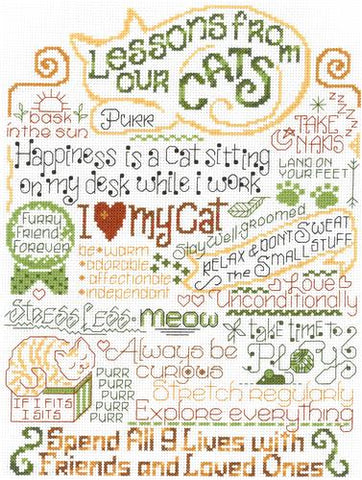 Lessons from
our CATS
Purr
bask
in the sun
z z z z z
TAKE
NAPS
Happiness is a cat sitting
on my desk while i work
LAND ON
YOUR FEET
Furry
Friend
Forever
I ♥ my Cat
Stay well-groomed
be • warm
• adorable
• affectionate
• independent
RELAX & DON'T SWEAT
the SMALL STUFF
Love
Unconditionally
STRESS LESS • meow
take time to
PLAY
Always be
curious
IF I FITS
I SITS
PURR
PURR
PURR
PURR
PURR
Stretch regularly
Explore everything
Spend All 9 Lives with
Friends and Loved Ones